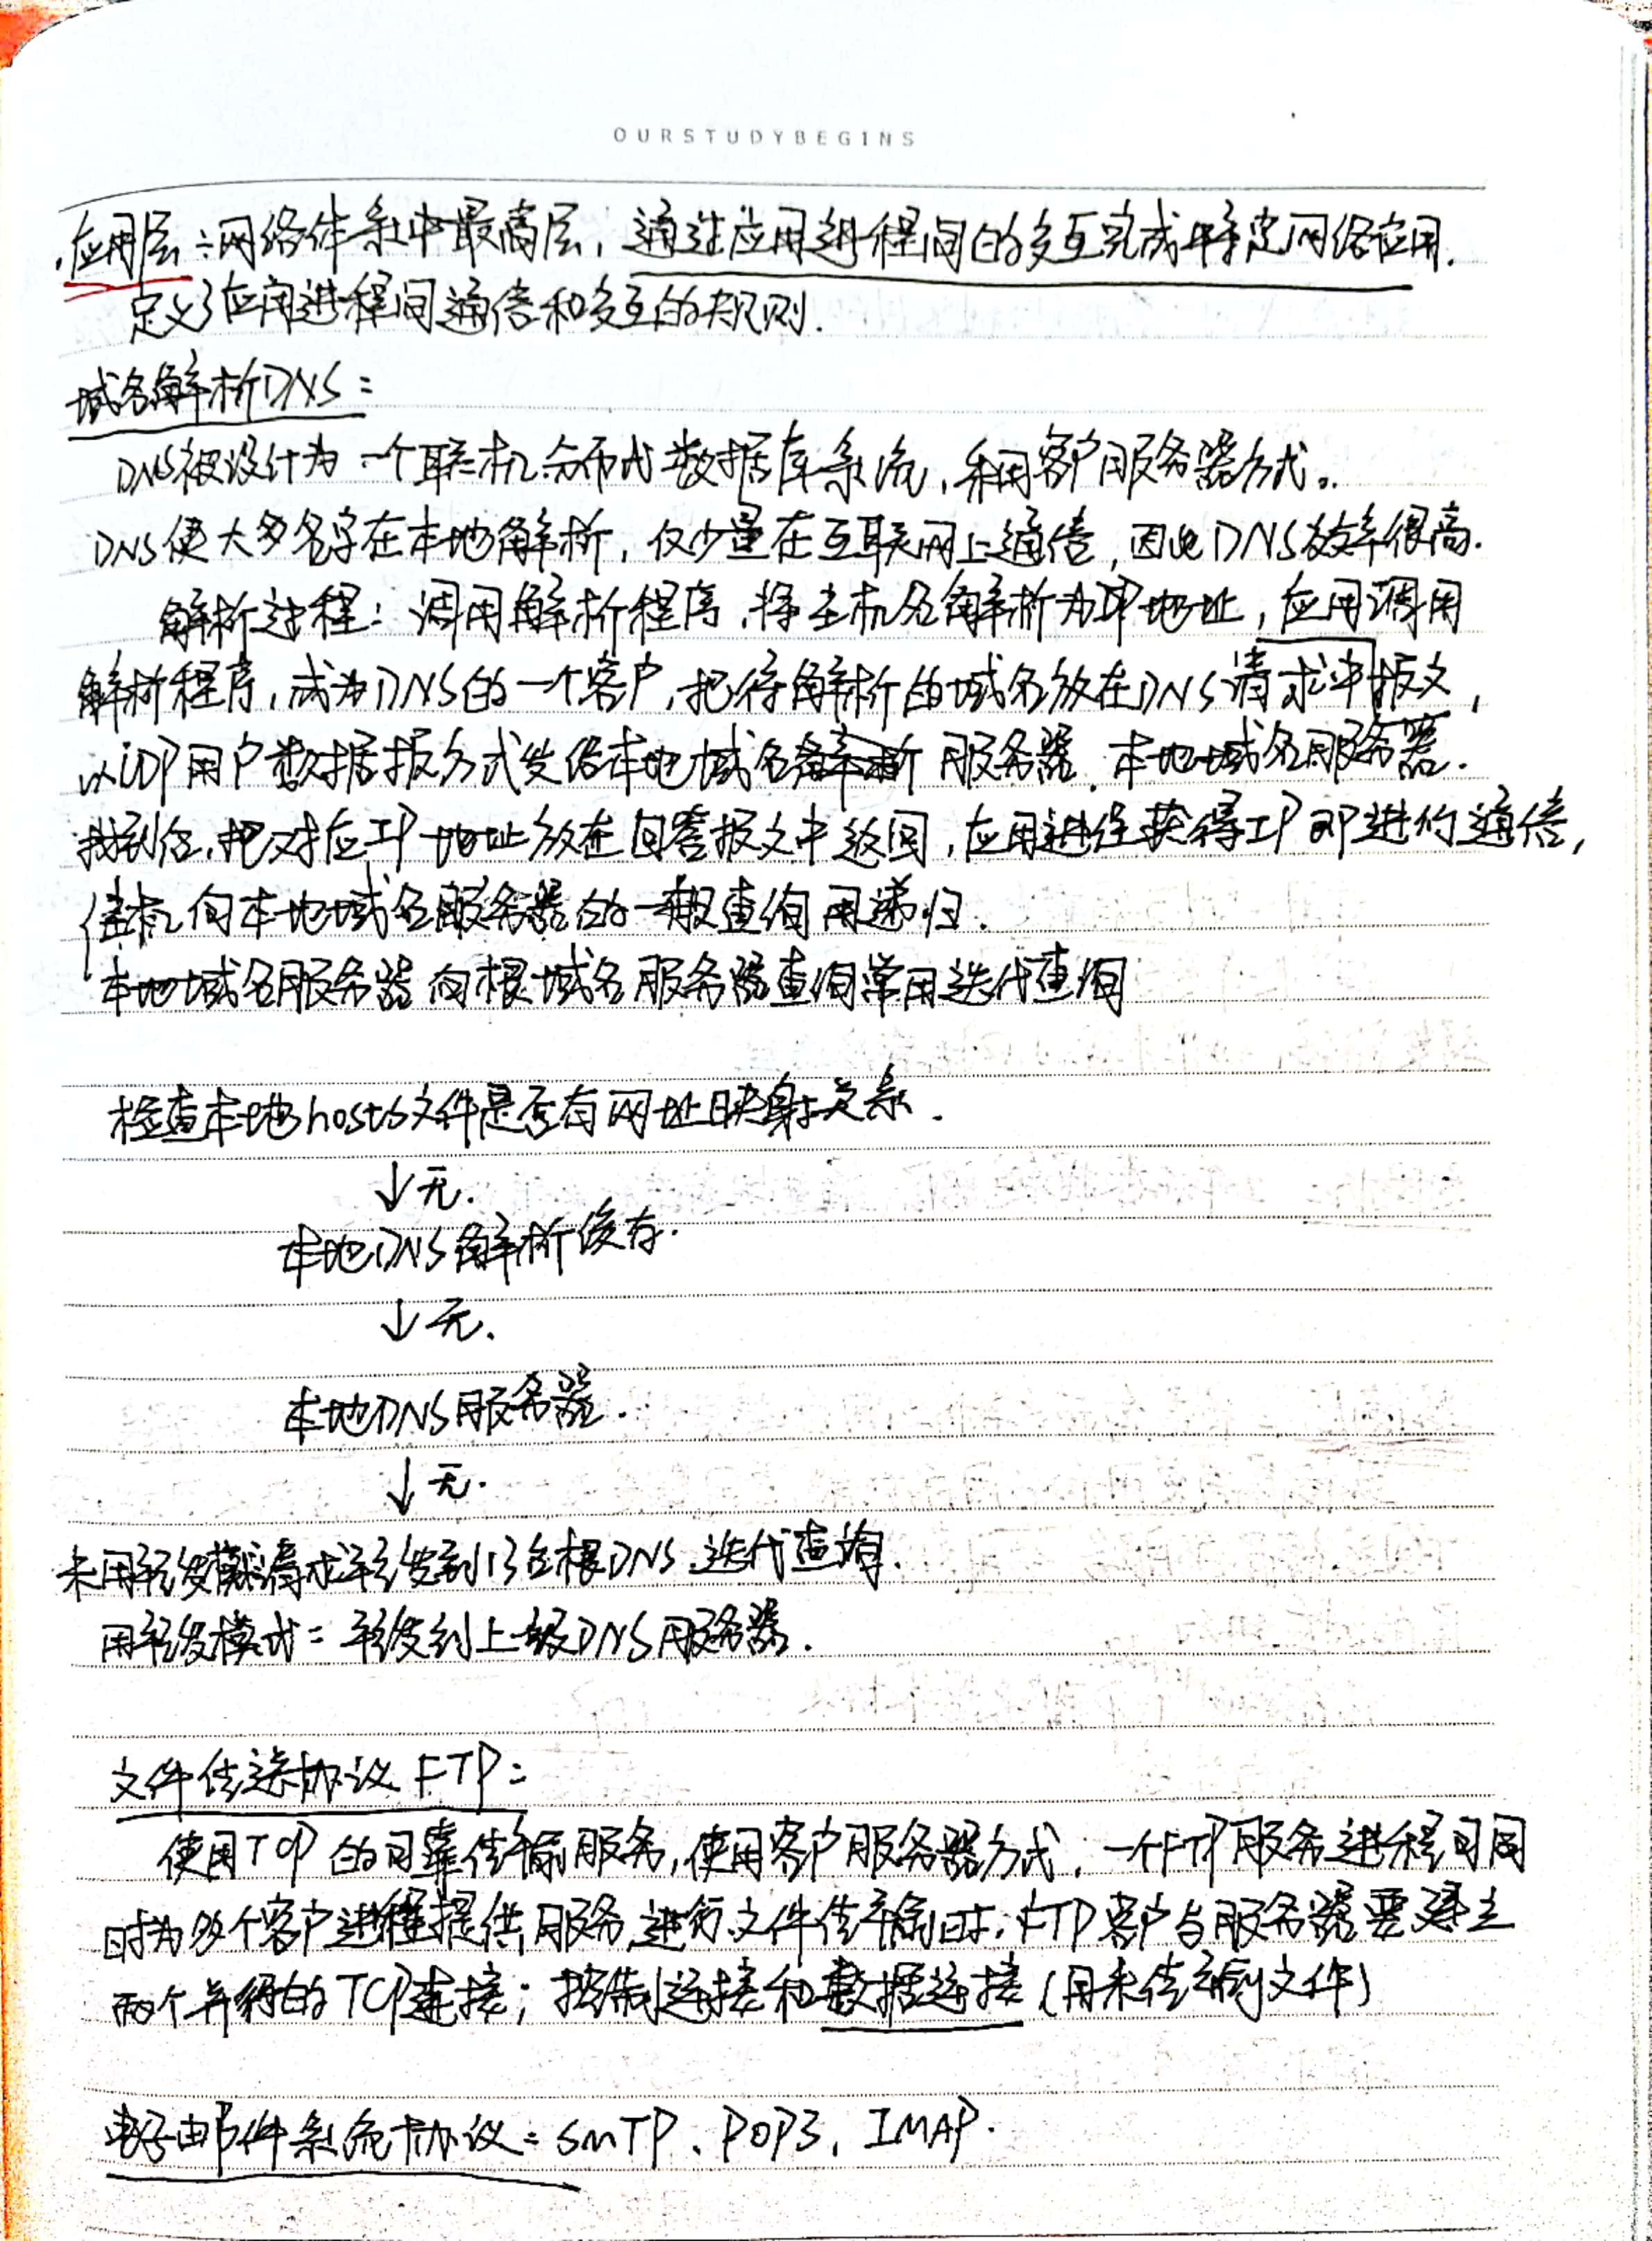 OURSTUDYBEGINS
.应用层:网络体系中最高层,通过应用进程间的交互完成特定网络应用.
定义了应用进程间通信和交互的规则.
域名解析DNS:
DNS被设计为一个联机分布式数据库系统,采用客户服务器方式。
DNS使大多名字在本地解析,仅少量在互联网上通信,因此DNS效率很高.
解析过程:调用解析程序,将主机名解析为IP地址,应用调用
解析程序,成为DNS的一个客户,把待解析的域名放在DNS请求中报文,
以UDP用户数据报方式发给本地域名解析服务器.本地域名服务器.
找到后,把对应IP地址放在回答报文中返回,应用进程获得IP即进行通信,
主机向本地域名服务器的一般查询用递归.
本地域名服务器向根域名服务器查询常用迭代查询
检查本地hosts文件是否有网址映射关系.
↓无.
本地DNS解析缓存.
↓无.
本地DNS服务器.
↓无.
未用转发模式:请求转发到13台根DNS.迭代查询.
用转发模式:转发到上一级DNS服务器.
文件传送协议FTP:
使用TCP的可靠传输服务,使用客户服务器方式,一个FTP服务进程可同
时为多个客户进程提供服务,进行文件传输时,FTP客户与服务器要建立
两个并行的TCP连接;控制连接和数据连接(用来传输文件)
电子邮件系统协议:SMTP、POP3,IMAP.